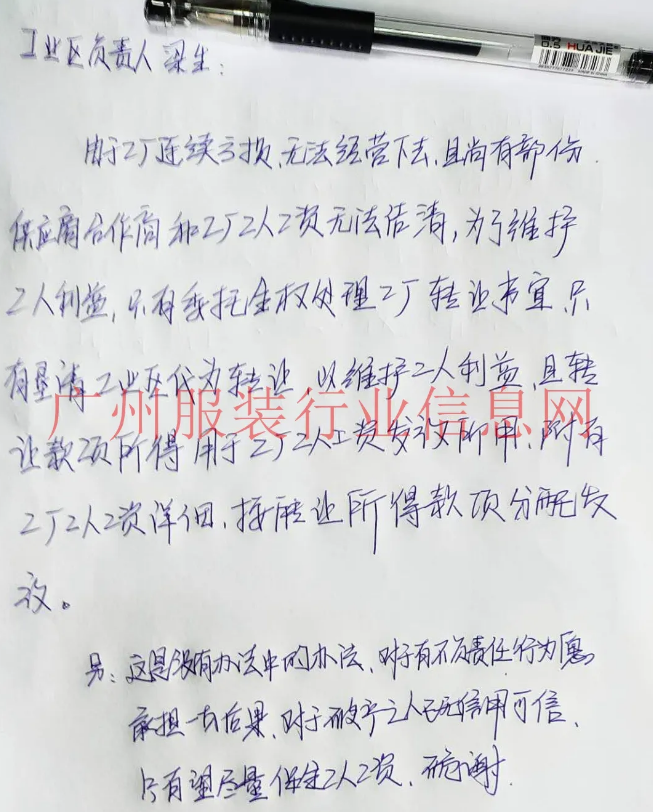 0.5 HUAJIE
工业区负责人 梁生:
由于工厂连续亏损,无法经营下去,且尚有部份
供应商合作商和工厂工人工资无法结清,为了维护
工人利益,只有委托全权处理工厂转让事宜,只
有恳请工业区代为转让,以维护工人利益,且转
广州服装行业信息网
让款项所得用于工厂工人工资发放所用,附有
工厂工人工资详细,按转让所得款项分配发
放。
另:这是没有办法中的办法,对于有不负责任行为愿
承担一切后果,对于破产之人已无信用可信,
只有望尽量保住工人工资,砘谢.